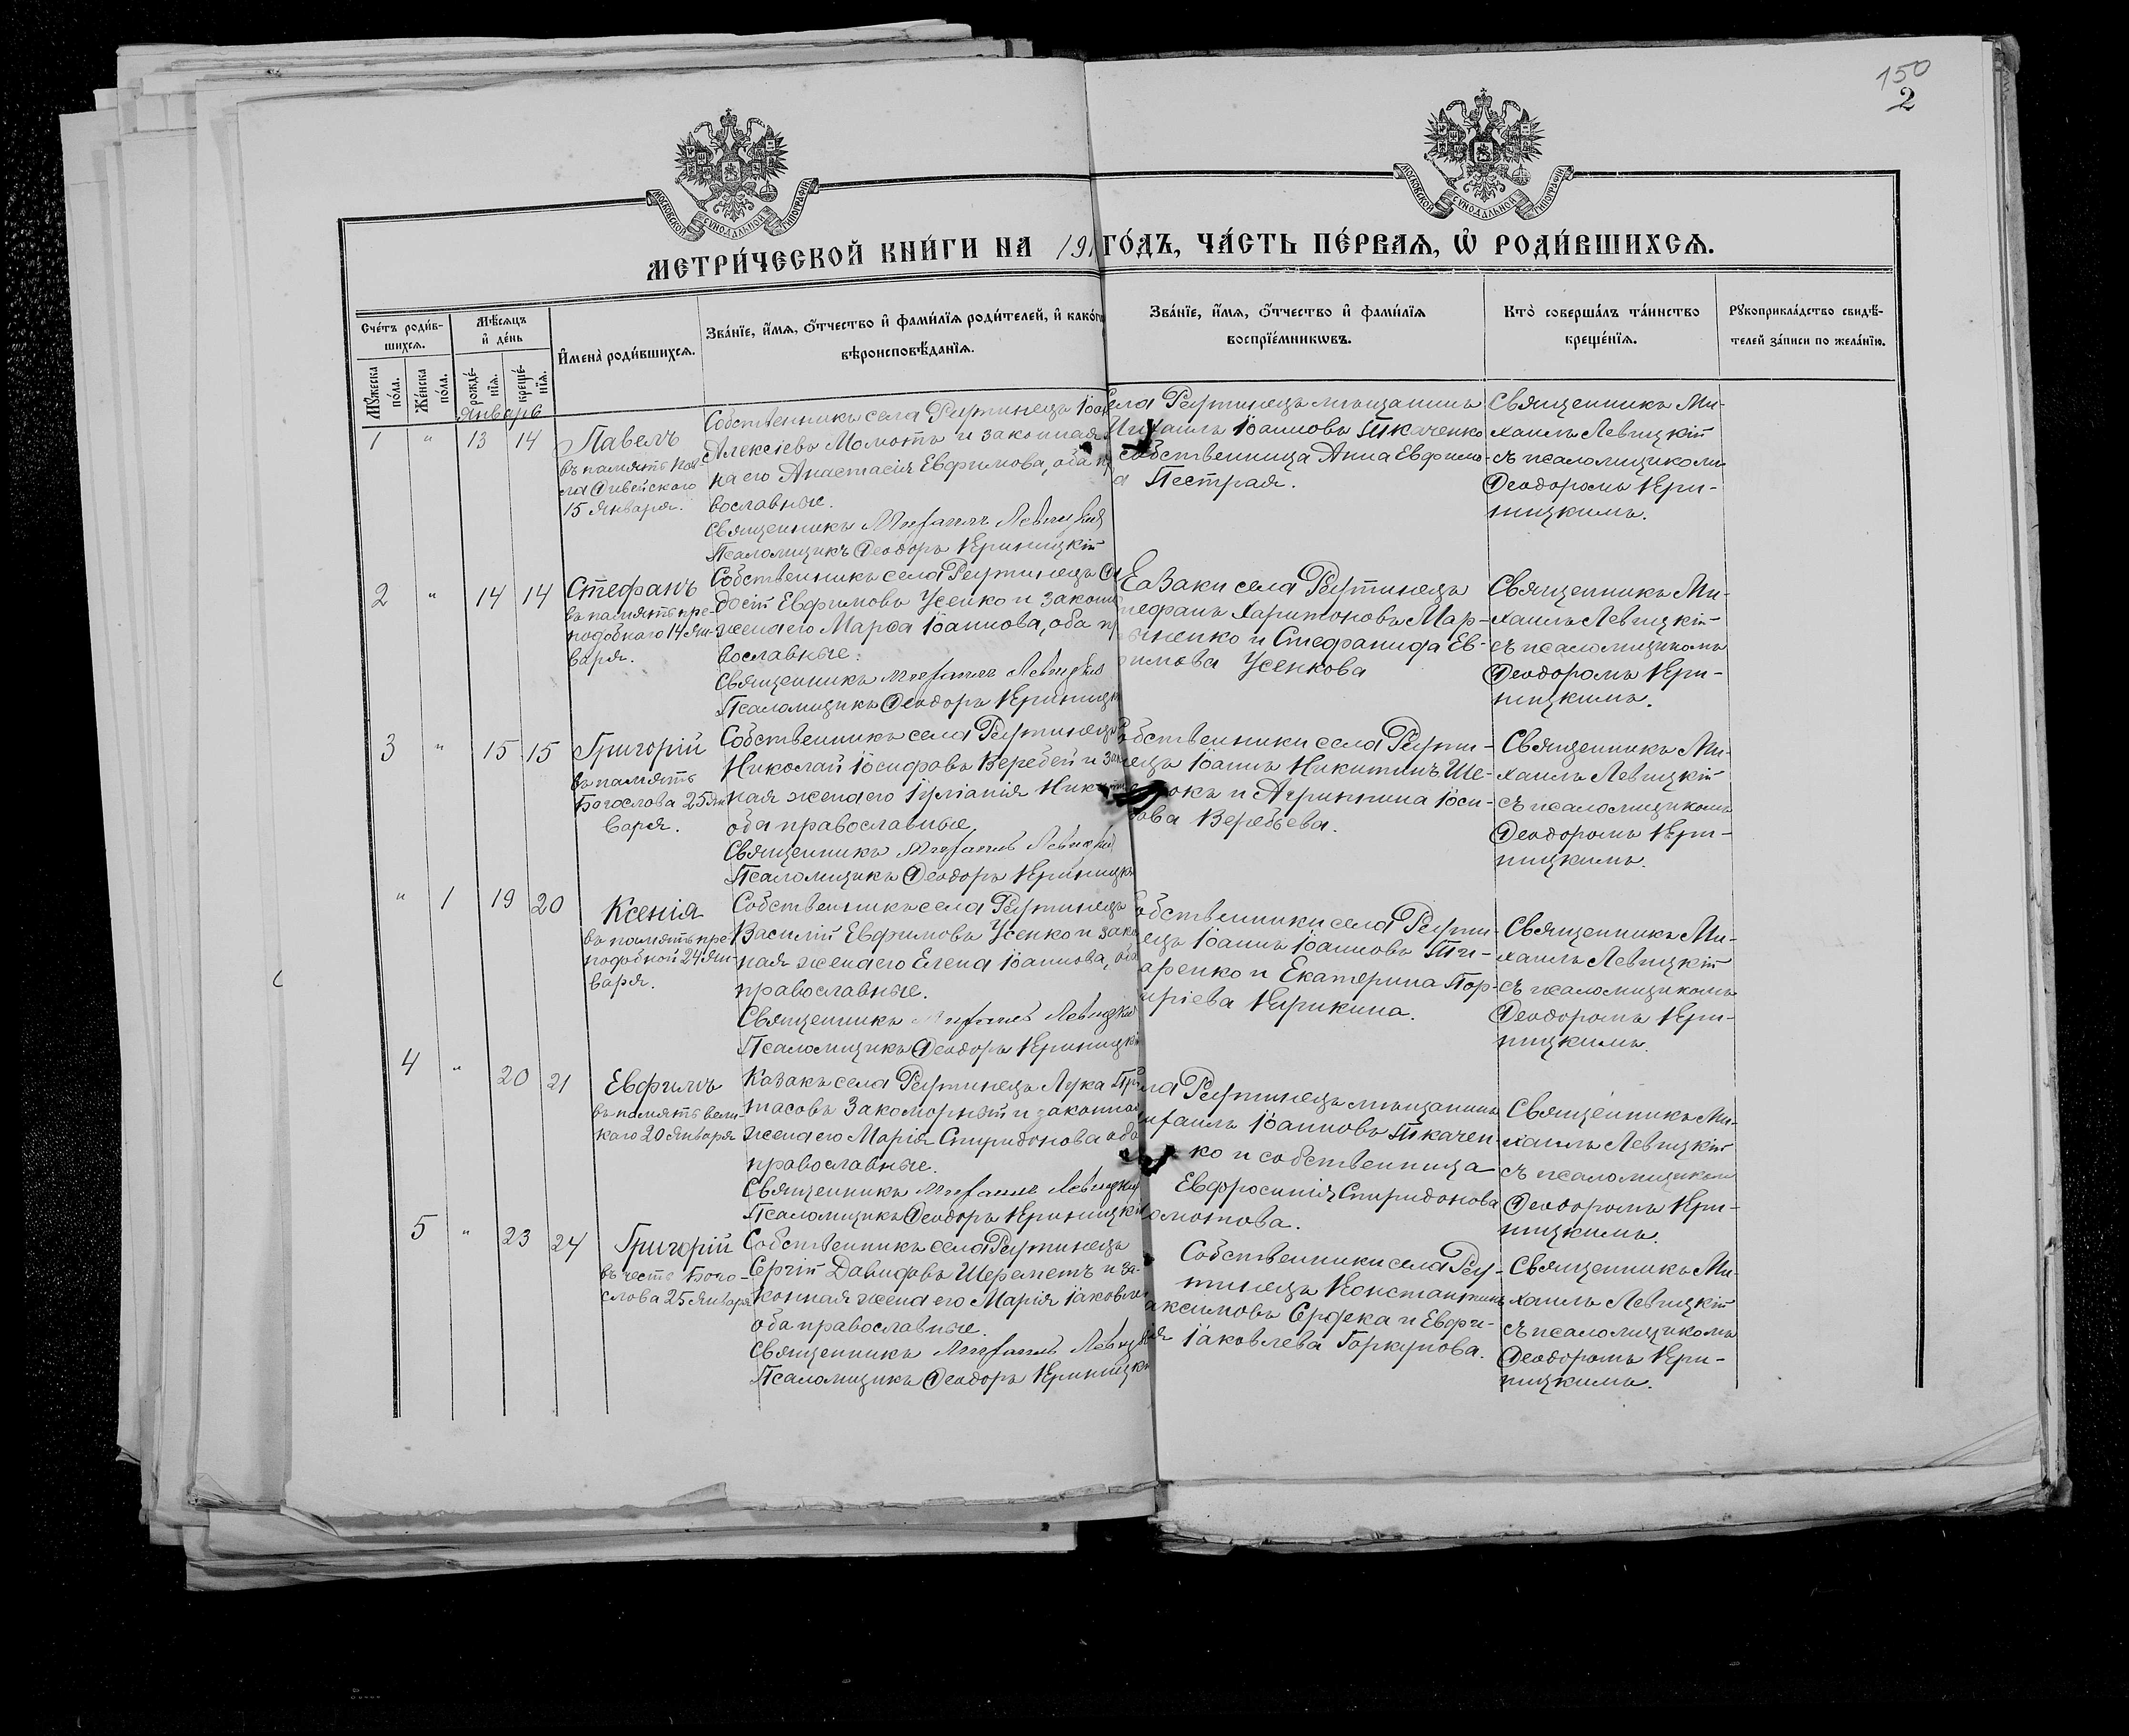 150
2
МОСКОВСКОЙ СѴНОДАЛЬНОЙ ТИПОГРАФІИ
МОСКОВСКОЙ СѴНОДАЛЬНОЙ ТИПОГРАФІИ
МЕТРИ́ЧЕСКОЙ КНИ́ГИ НА 191 ГО́ДЪ, ЧА́СТЬ ПЕ́РВАЯ, Ѡ РОДИ́ВШИХСЯ.
Сче́тъ роди́в-
шихся.
Мѣ́сяцъ
и҆ де́нь
Мꙋ́жеска
по́ла.
Же́нска
по́ла.
рожде́-
нїя.
креще́-
нїя.
И҆мена̀ роди́вшихся.
Зва́нїе, и҆́мя, ѻ҆́тчество и҆ фами́лїя роди́телей, и҆ како́гѡ
вѣроисповѣ́данїя.
Зва́нїе, и҆́мя, ѻ҆́тчество и҆ фами́лїя
воспрїе́мникѡвъ.
Кто̀ соверша́лъ та́инство
креще́нїя.
Рꙋкоприкла́дство свидѣ́-
телей за́писи по жела́нїю.
Январь
1 " 13 14
Павелъ
въ память Пав-
ла Ѳивейского
15 Января.
Собственникъ села Реутинецъ Іоа
Алексіевъ Момотъ и законная
на его Анастасія Евфимова, оба пр
вославные.
Священникъ Михаилъ Левицкій
Псаломщикъ Ѳеодоръ Криницкій
села Реутинецъ мѣщанинъ
Михаилъ Іоанновъ Ткаченко
собственница Анна Евфимо-
а Пестрая.
Священникъ Ми-
хаилъ Левицкій
съ псаломщикомъ
Ѳеодоромъ Кри-
ницкимъ.
2 " 14 14
Стефанъ
въ память пре-
подобнаго 14 Ян-
варя.
Собственникъ села Реутинецъ Ѳе
досій Евфимовъ Усенко и закон
жена его Марѳа Іоаннова, оба пр
вославные.
Священникъ Михаилъ Левицкій
Псаломщикъ Ѳеодоръ Криницк
Казаки села Реутинецъ
тефанъ Харитоновъ Мар-
ненко и Стефанида Ев-
имова Усенкова
Священникъ Ми-
хаилъ Левицкій
съ псаломщикомъ
Ѳеодоромъ Кри-
ницкимъ.
3 " 15 15
Григорій
въ память
Богослова 25 Ян
варя.
Собственникъ села Реутинецъ
Николай Іосифовъ Веребей и зак
ная жена его Іуліанія Никит
оба православные.
Священникъ Михаилъ Левицкій
Псаломщикъ Ѳеодоръ Криницк
обственники села Реути-
нецъ Іоаннъ Никитинъ Ше-
окъ и Агриппина Іоси-
ова Веребьева.
Священникъ Ми-
хаилъ Левицкій
съ псаломщикомъ
Ѳеодоромъ Кри-
ницкимъ.
" 1 19 20
Ксенія
въ память пре-
подобной 24 Ян-
варя.
Собственникъ села Реутинецъ
Василій Евфимовъ Усенко и зако
ная жена его Елена Іоаннова, оба
православные.
Священникъ Михаилъ Левицкій
Псаломщикъ Ѳеодоръ Криницкі
обственники села Реути-
ецъ Іоаннъ Іоанновъ Ти-
аренко и Екатерина Пор-
иріева Курикина.
Священникъ Ми-
хаилъ Левицкій
съ псаломщикомъ
Ѳеодоромъ Кри-
ницкимъ.
4 " 20 21
Евфимъ
въ память вели-
каго 20 Января
Казакъ села Реутинецъ Лука Про
тасовъ Закоморный и законная
жена его Марія Спиридонова оба
православные.
Священникъ Михаилъ Левицкій
Псаломщикъ Ѳеодоръ Криницкій
ла Реутинецъ мѣщанинъ
ихаилъ Іоанновъ Ткачен-
ко и собственница
Евфросинія Спиридонова
омотова.
Священникъ Ми-
хаилъ Левицкій
съ псаломщикомъ
Ѳеодоромъ Кри-
ницкимъ.
5 " 23 24
Григорій
въ честь Бого-
слова 25 Января
Собственникъ села Реутинецъ
Сергій Давидовъ Шереметъ и за-
конная жена его Марія Іаковле
оба православные.
Священникъ Михаилъ Левицкі
Псаломщикъ Ѳеодоръ Криницкі
Собственники села Реу-
тинецъ Константинъ
аксимовъ Сердека и Евфи-
ія Іаковлева Горкунова.
Священникъ Ми-
хаилъ Левицкій
съ псаломщикомъ
Ѳеодоромъ Кри-
ницкимъ.